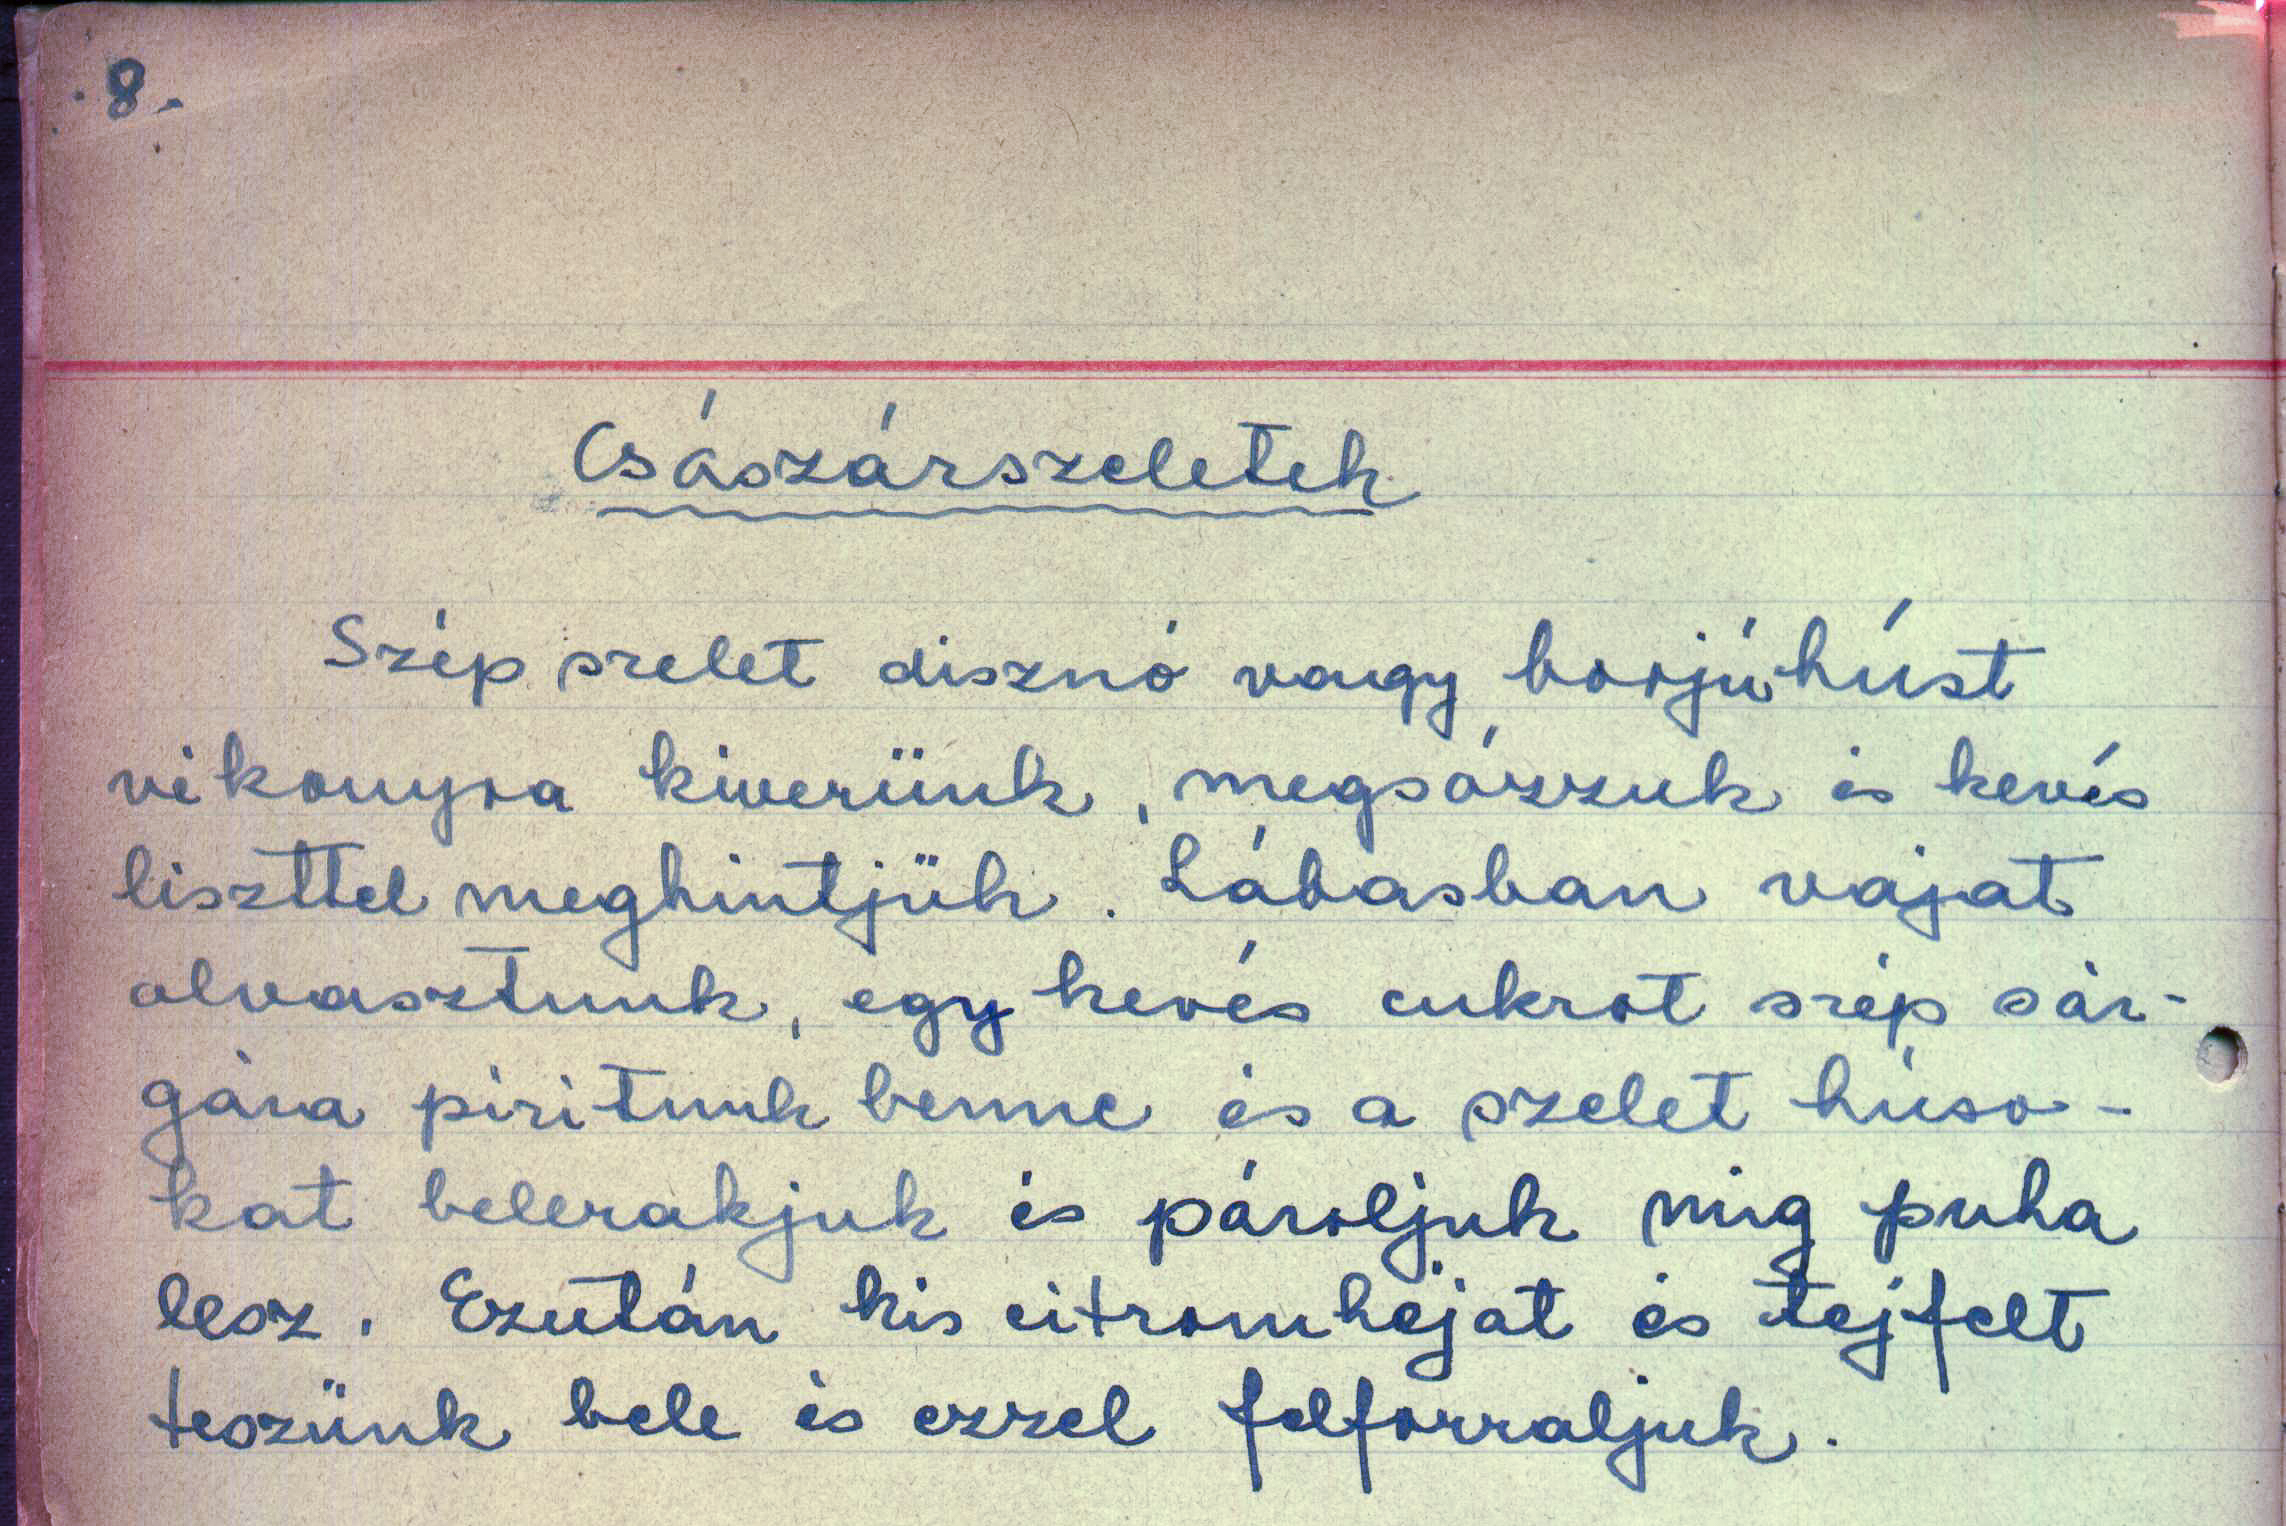 8.
Császárszeletek
Szép szelet disznó vagy borjúhúst
vékonyra kiverünk, megsózzuk és kevés
liszttel meghintjük. Lábasban vajat
olvasztunk, egy kevés cukrot szép sár-
gára piritunk benne és a szelet húso-
kat belerakjuk és pároljuk mig puha
lesz. Ezután kis citromhéjat és tejfelt
teszünk bele és ezzel felforraljuk.